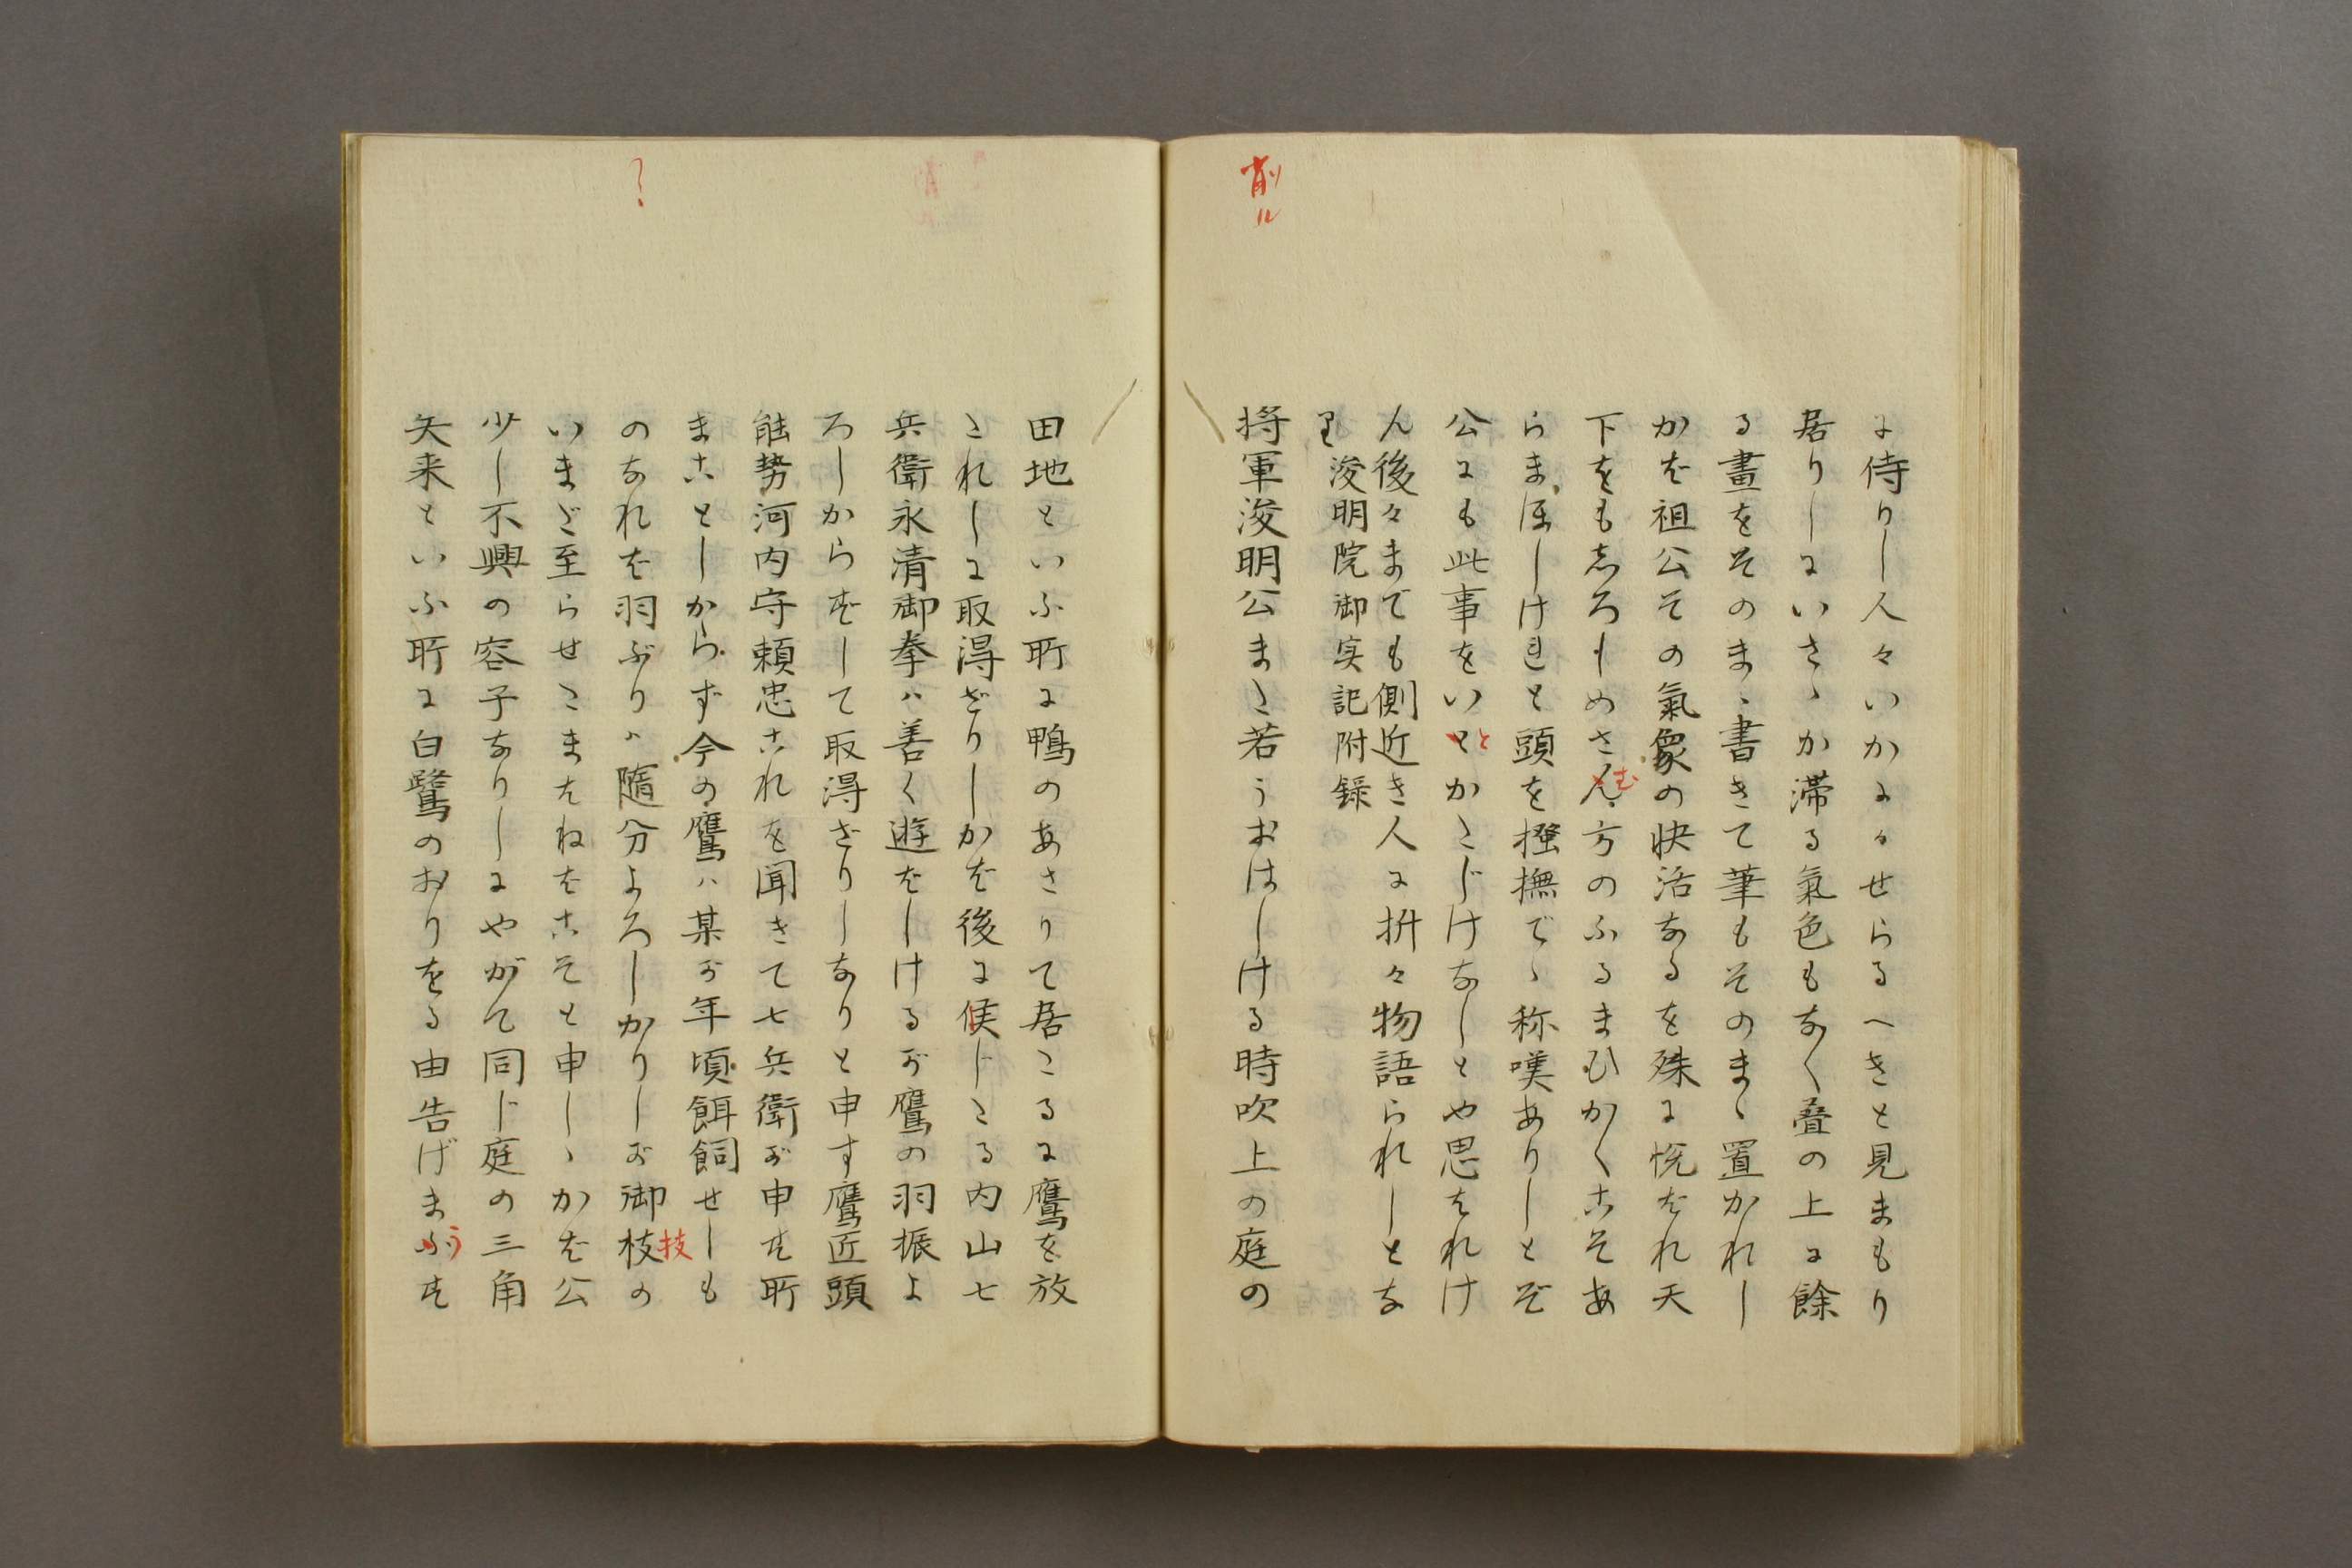 削ル
に侍りし人々いかに々せらるへきと見まもり
居りしにいさゝか滞る氣色もなく疊の上に餘
る畫をそのまゝ書きて筆もそのまゝ置かれし
かば祖公その氣象の快活なるを殊に悦ばれ天
下をもしろしめさん方のふるまひかくこそあ
む
らまほしけれと頭を撫撫でゝ称嘆ありしとぞ
公にも此事をいとかたじけなしとや思はれけ
と
ん後々までも側近き人に折々物語られしとな
り 浚明院御実記附録
将軍浚明公また若うおはしける時吹上の庭の
？
田地といふ所に鴨のあさりて居たるに鷹を放
たれしに取得ざりしかば後に候じたる内山七
兵衛永清御拳ハ善く遊ばしけるが鷹の羽振よ
ろしからずして取得ざりしなりと申す鷹匠頭
能勢河内守頼忠これを聞きて七兵衛が申す所
まことしからず今の鷹ハ某が年頃餌飼せしも
のなれば羽ぶりハ随分よろしかりしが御枝の
技
いまだ至らせたまはねばこそと申しゝかば公
少し不興の容子なりしにやがて同じ庭の三角
矢来といふ所に白鷺のおりをる由告げまふす
う